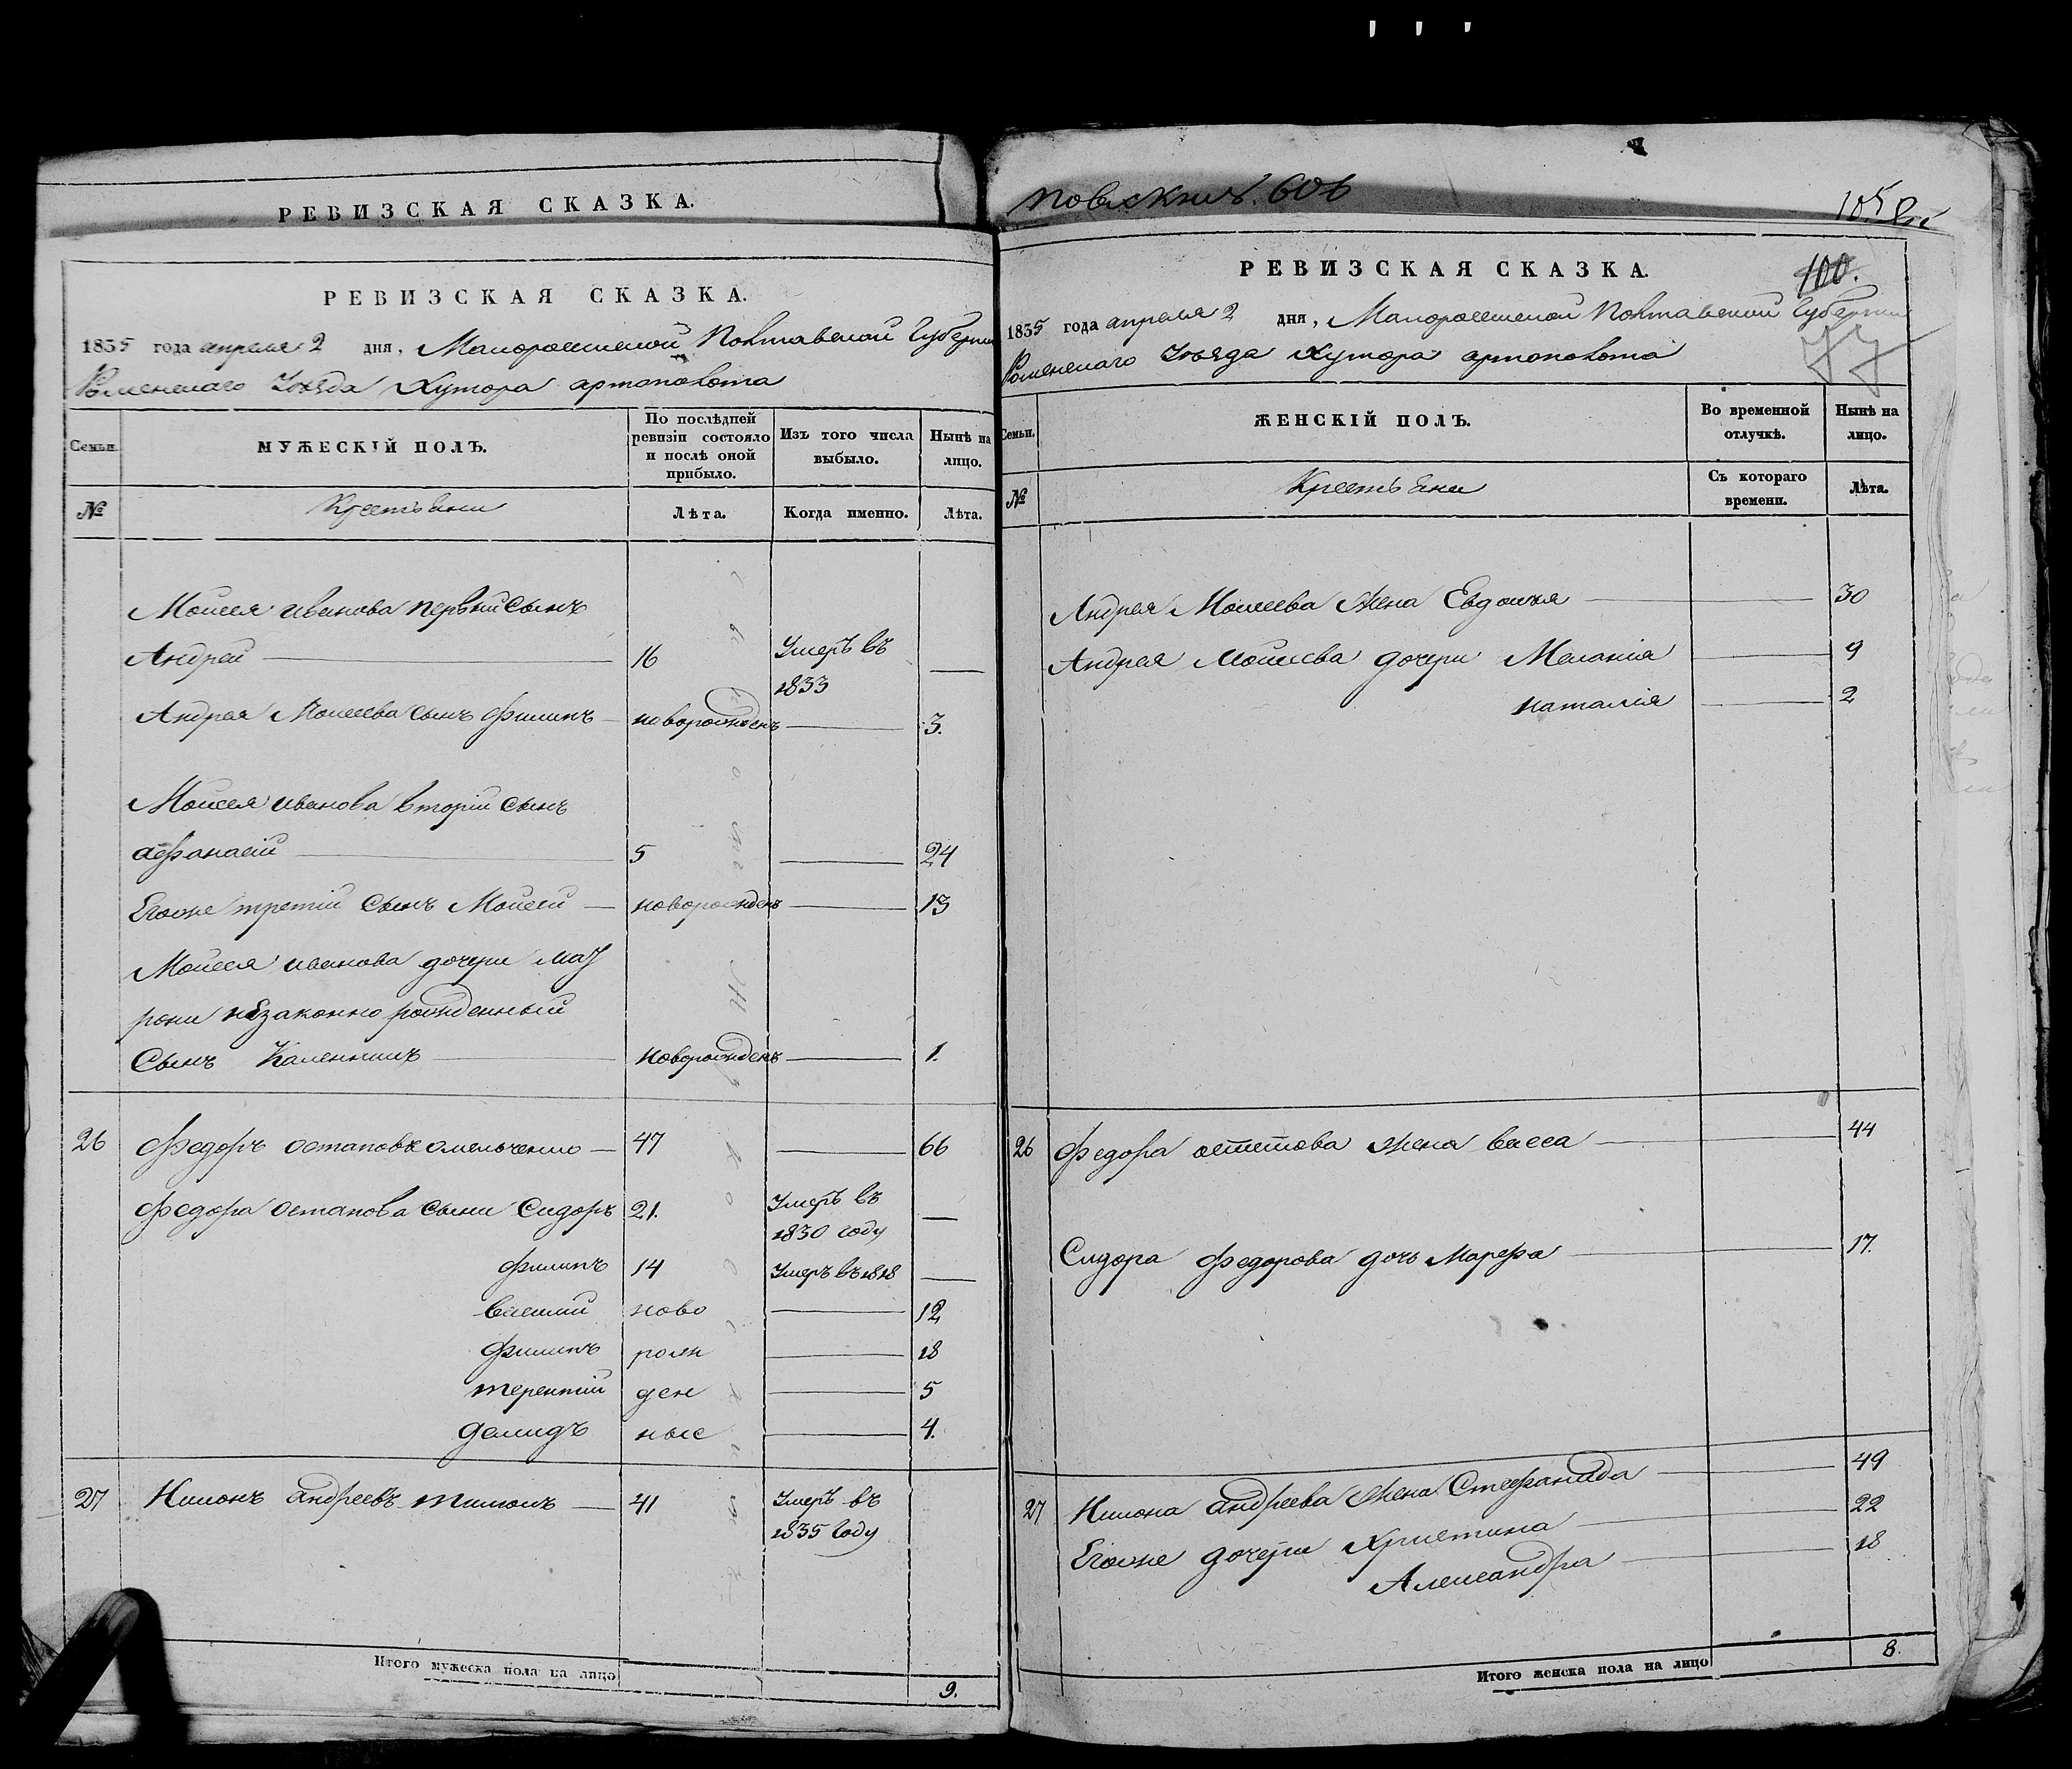 РЕВИЗСКАЯ СКАЗКА.
РЕВИЗСКАЯ СКАЗКА.
1835 года апреля 2 дня, Малоросейской Полтавской Губерни
Роменскаго Уъзда Хутора артополота
Семьи.
МУЖЕСКІЙ ПОЛЪ.
По послѣдней ревизіи состояло и послѣ оной прибыло.
Изъ того числа выбыло.
Нынѣ на лицо.
№
Крестьяни
Лѣта.
Когда именно.
Лѣта.
Моисея иванова первий сынъ
Андрей 16 Умеръ въ 1833
Андрея Моисеева сынъ Филипъ новорожденъ 3.
Моисея иванова вторій сынъ
афанасій 5 24
Егоже третій сынъ Моисей новорожденъ 13
Моисея иванова дочери мау
рони незаконно рожденный
Сынъ Каленникъ новорожденъ 1.
26 Федоръ остаповъ омельченко 47 66
Федора остапова сыни Сидоръ 21. Умеръ въ 1830 году
филипъ 14 Умеръ въ 1818
василий ново 12
филипъ рож 18
терентій ден 5
демидъ ные 4.
27 Андреевъ 41 Умеръ въ 1835 году
Итого мужеска пола на лицо 9.
606
100.
77
РЕВИЗСКАЯ СКАЗКА.
1835 года апреля 2 дня, Малоросейской Полтавской Губерни
Роменскаго Уъзда Хутора артополота
Семьи.
ЖЕНСКІЙ ПОЛЪ.
Во временной отлучкѣ.
Нынѣ на лицо.
№
Крестьяни
Съ котораго времени.
Лѣта.
Андрея Моисеева жена Евдокия 30
Андрея Моисеева дочери Меланія 9
наталія 2
26 Федора жена васса 44
Сидора Федорова дочь Марфа 17.
27 андреева жена Стефанида 49
Егоже дочери Христина 22
Александра 18
Итого женска пола на лицо 8.